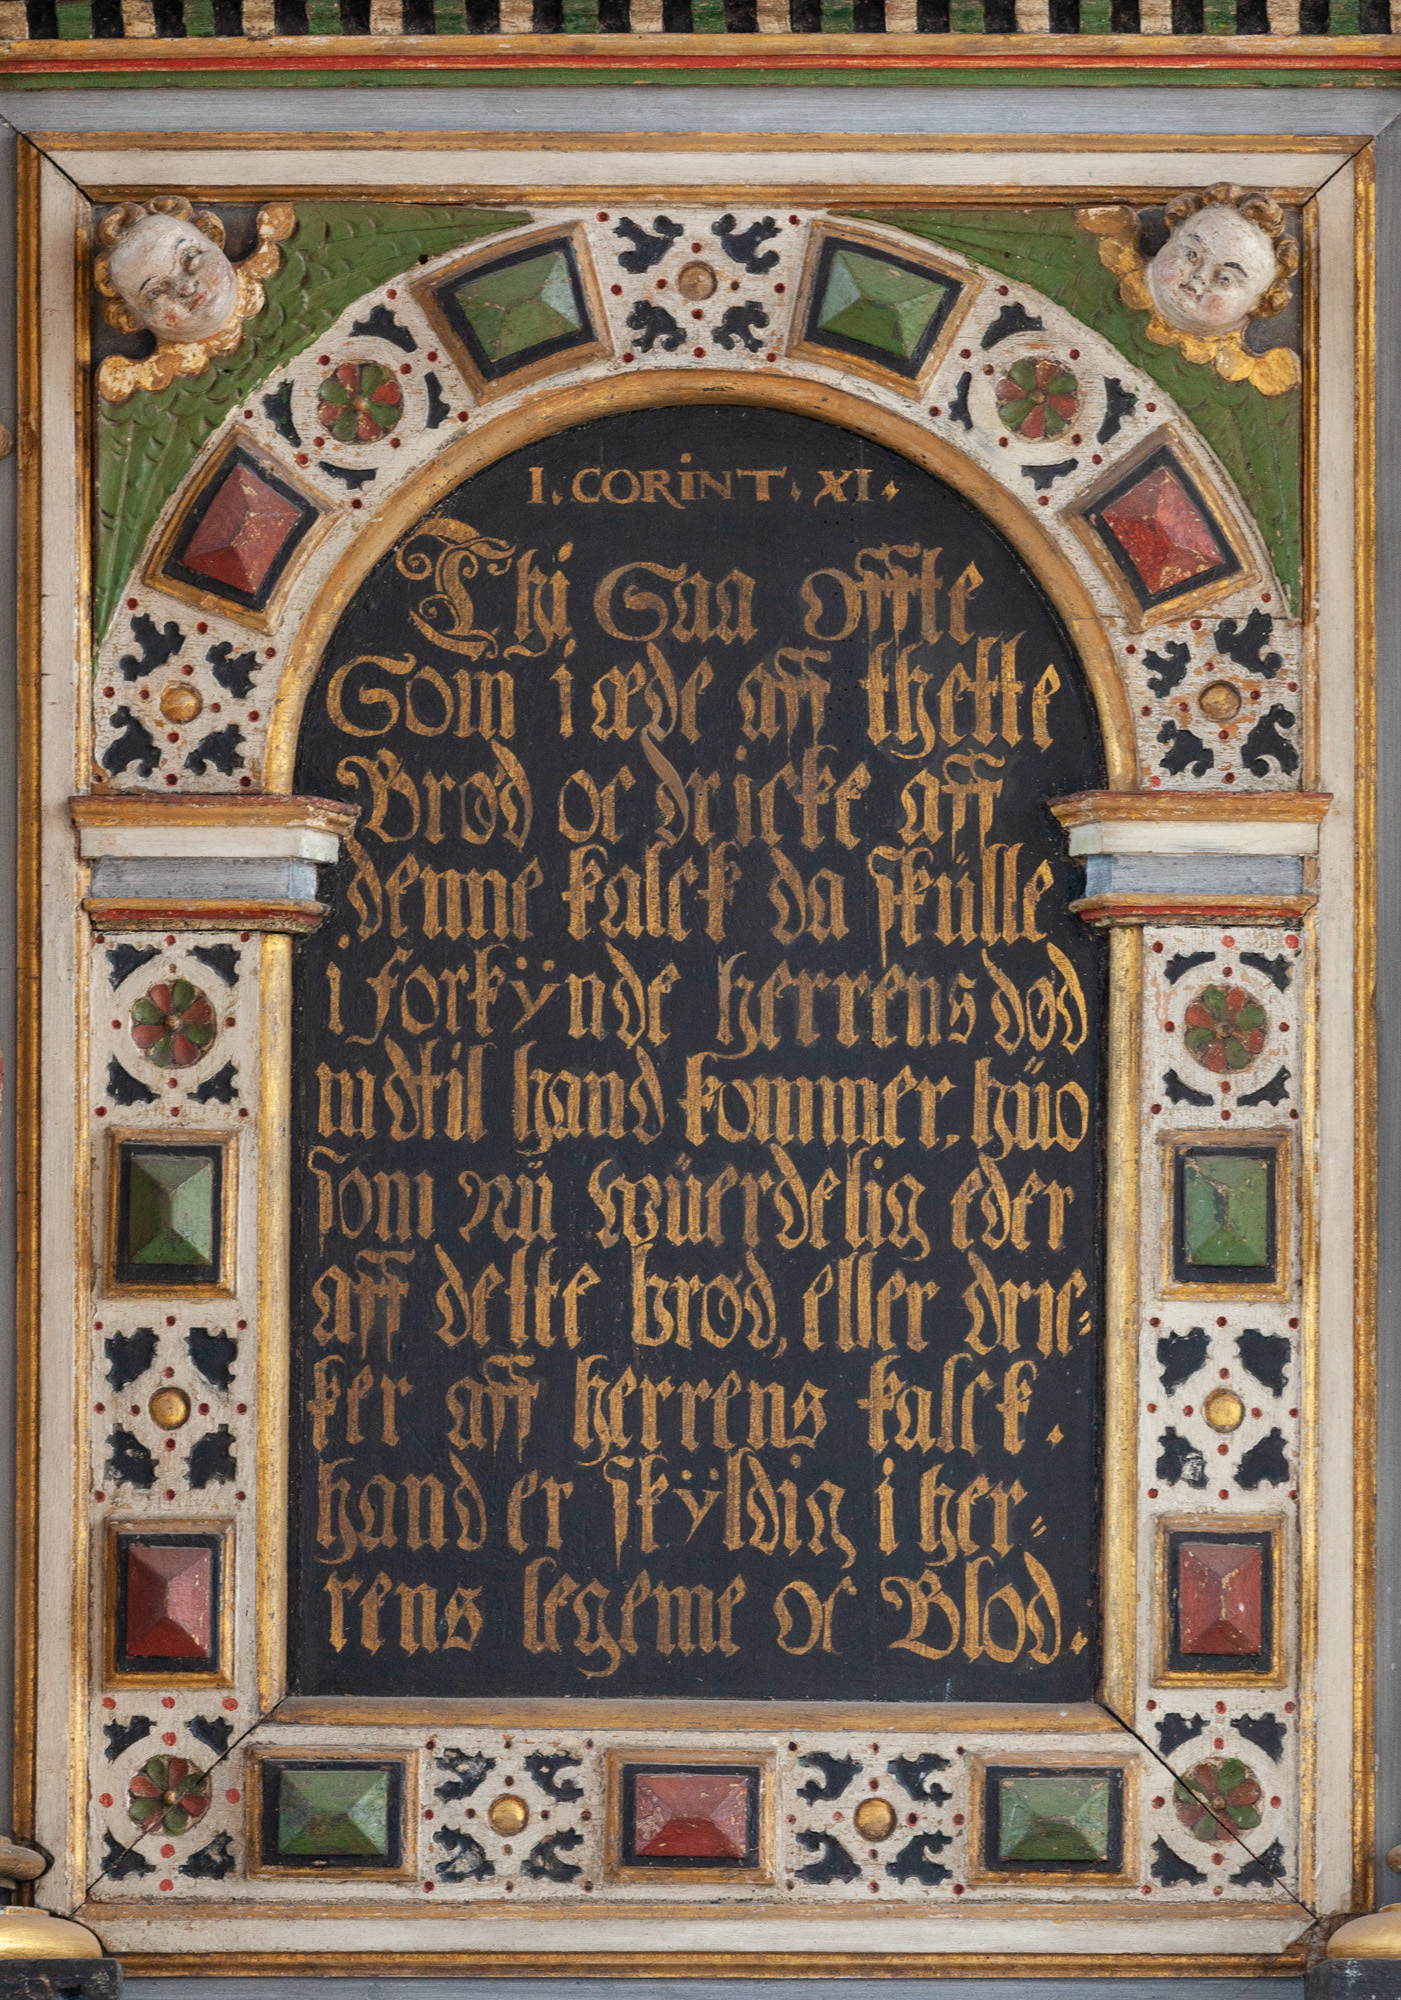 I. CORINT. XI.
Thi Saa offte
Som i æde aff thette
Brød oc dricke aff
denne kalck da skülle
i forkÿnde herrens død
indtil hand kommer, hüo
som nü wüerdelig eder
aff dette brød, eller dric-
ker aff herrens kalck.
hand er skÿldig i her-
rens legeme oc Blod.